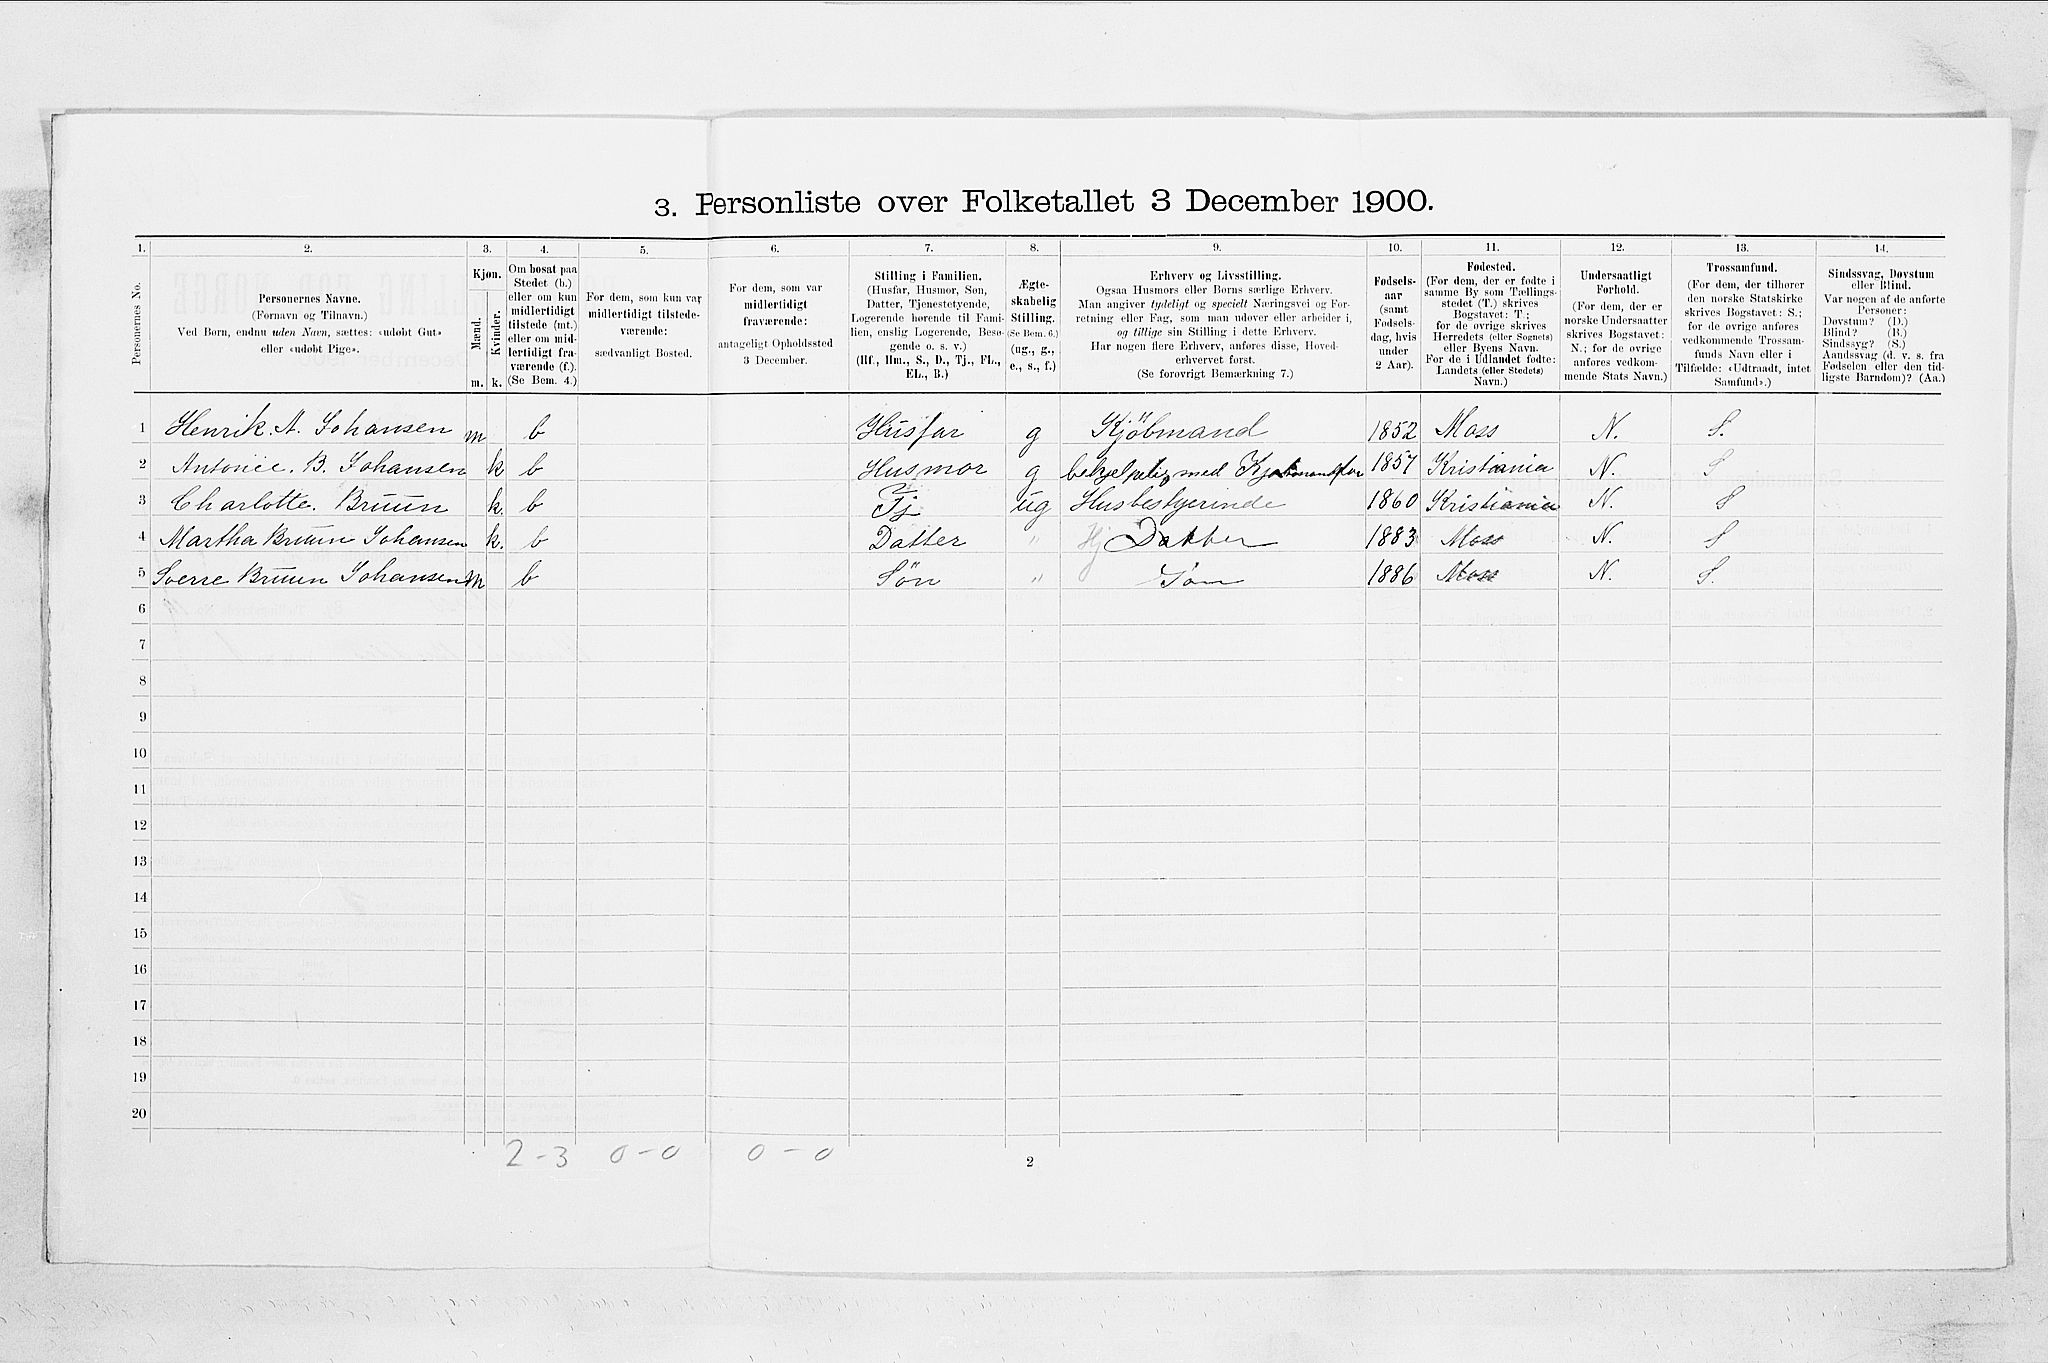 3. Personliste over Folketallet 3 December 1900.
1. 2. 3. 4. 5. 6. 7. 8. 9. 10. 11. 12. 13. 14.
Personernes No.
Personernes Navne.
(Fornavn og Tilnavn.)
Ved Børn, endnu uden Navn, sættes: «udøbt Gut»
eller «udøbt Pige».
Kjøn.
Mænd.
Kvinder.
m. k.
Om bosat paa
Stedet (b.)
eller om kun
midlertidigt
tilstede (mt.)
eller om mid-
lertidigt fra-
værende (f.).
(Se Bem. 4.)
For dem, som kun var
midlertidigt tilstede-
værende:
sædvanligt Bosted.
For dem, som var
midlertidigt
fraværende:
antageligt Opholdssted
3 December.
Stilling i Familien.
(Husfar, Husmor, Søn,
Datter, Tjenestetyende,
Logerende hørende til Fami-
lien, enslig Logerende, Besø-
gende o. s. v.)
(Hf., Hm., S., D., Tj., FL.,
EL., B.)
Ægte-
skabelig
Stilling.
(Se Bem. 6.)
(ug., g.,
e., s., f.)
Erhverv og Livsstilling.
Ogsaa Husmors eller Børns særlige Erhverv.
Man angiver tydeligt og specielt Næringsvei og For-
retning eller Fag, som man udøver eller arbeider i,
og tillige sin Stilling i dette Erhverv.
Har nogen flere Erhverv, anføres disse, Hoved-
erhvervet først.
(Se forøvrigt Bemærkning 7.)
Fødsels-
aar
(samt
Fødsels-
dag, hvis
under
2 Aar).
Fødested.
(For dem, der er fødte i
samme By som Tællings-
stedet (T.) skrives
Bogstavet: T.;
for de øvrige skrives
Herredets (eller Sognets)
eller Byens Navn.
For de i Udlandet fødte:
Landets (eller Stedets)
Navn.)
Undersaatligt
Forhold.
(For dem, der er
norske Undersaatter
skrives Bogstavet:
N.; for de øvrige
anføres vedkom-
mende Stats Navn.)
Trossamfund.
(For dem, der tilhører
den norske Statskirke
skrives Bogstavet: S.;
for de øvrige anføres
vedkommende Trossam-
funds Navn eller i
Tilfælde: «Udtraadt, intet
Samfund».)
Sindssvag, Døvstum
eller Blind.
Var nogen af de anførte
Personer:
Døvstum? (D.)
Blind? (B.)
Sindssyg? (S.)
Aandssvag (d. v. s. fra
Fødselen eller den tid-
ligste Barndom)? (Aa.)
1 Henrik. A. Johansen m b Husfar g Kjöbmand 1852 Moss N. S.
2 Antonie. B. Johansen k b Husmor g behjelpelig med 1857 Kristiania N. S
3 Charlotte. Bruun k. b Tj ug Husbestyerinde 1860 Kristiania N. S
4 Martha Bruun Johansen k. b Datter " Hj Datter 1883 Moss N. S
5 Sverre Bruun Johansen m b Sön " Søn 1886 Moss N. S.
6
7
8
9
10
11
12
13
14
15
16
17
18
19
20
2-3 0-0 0-0
2